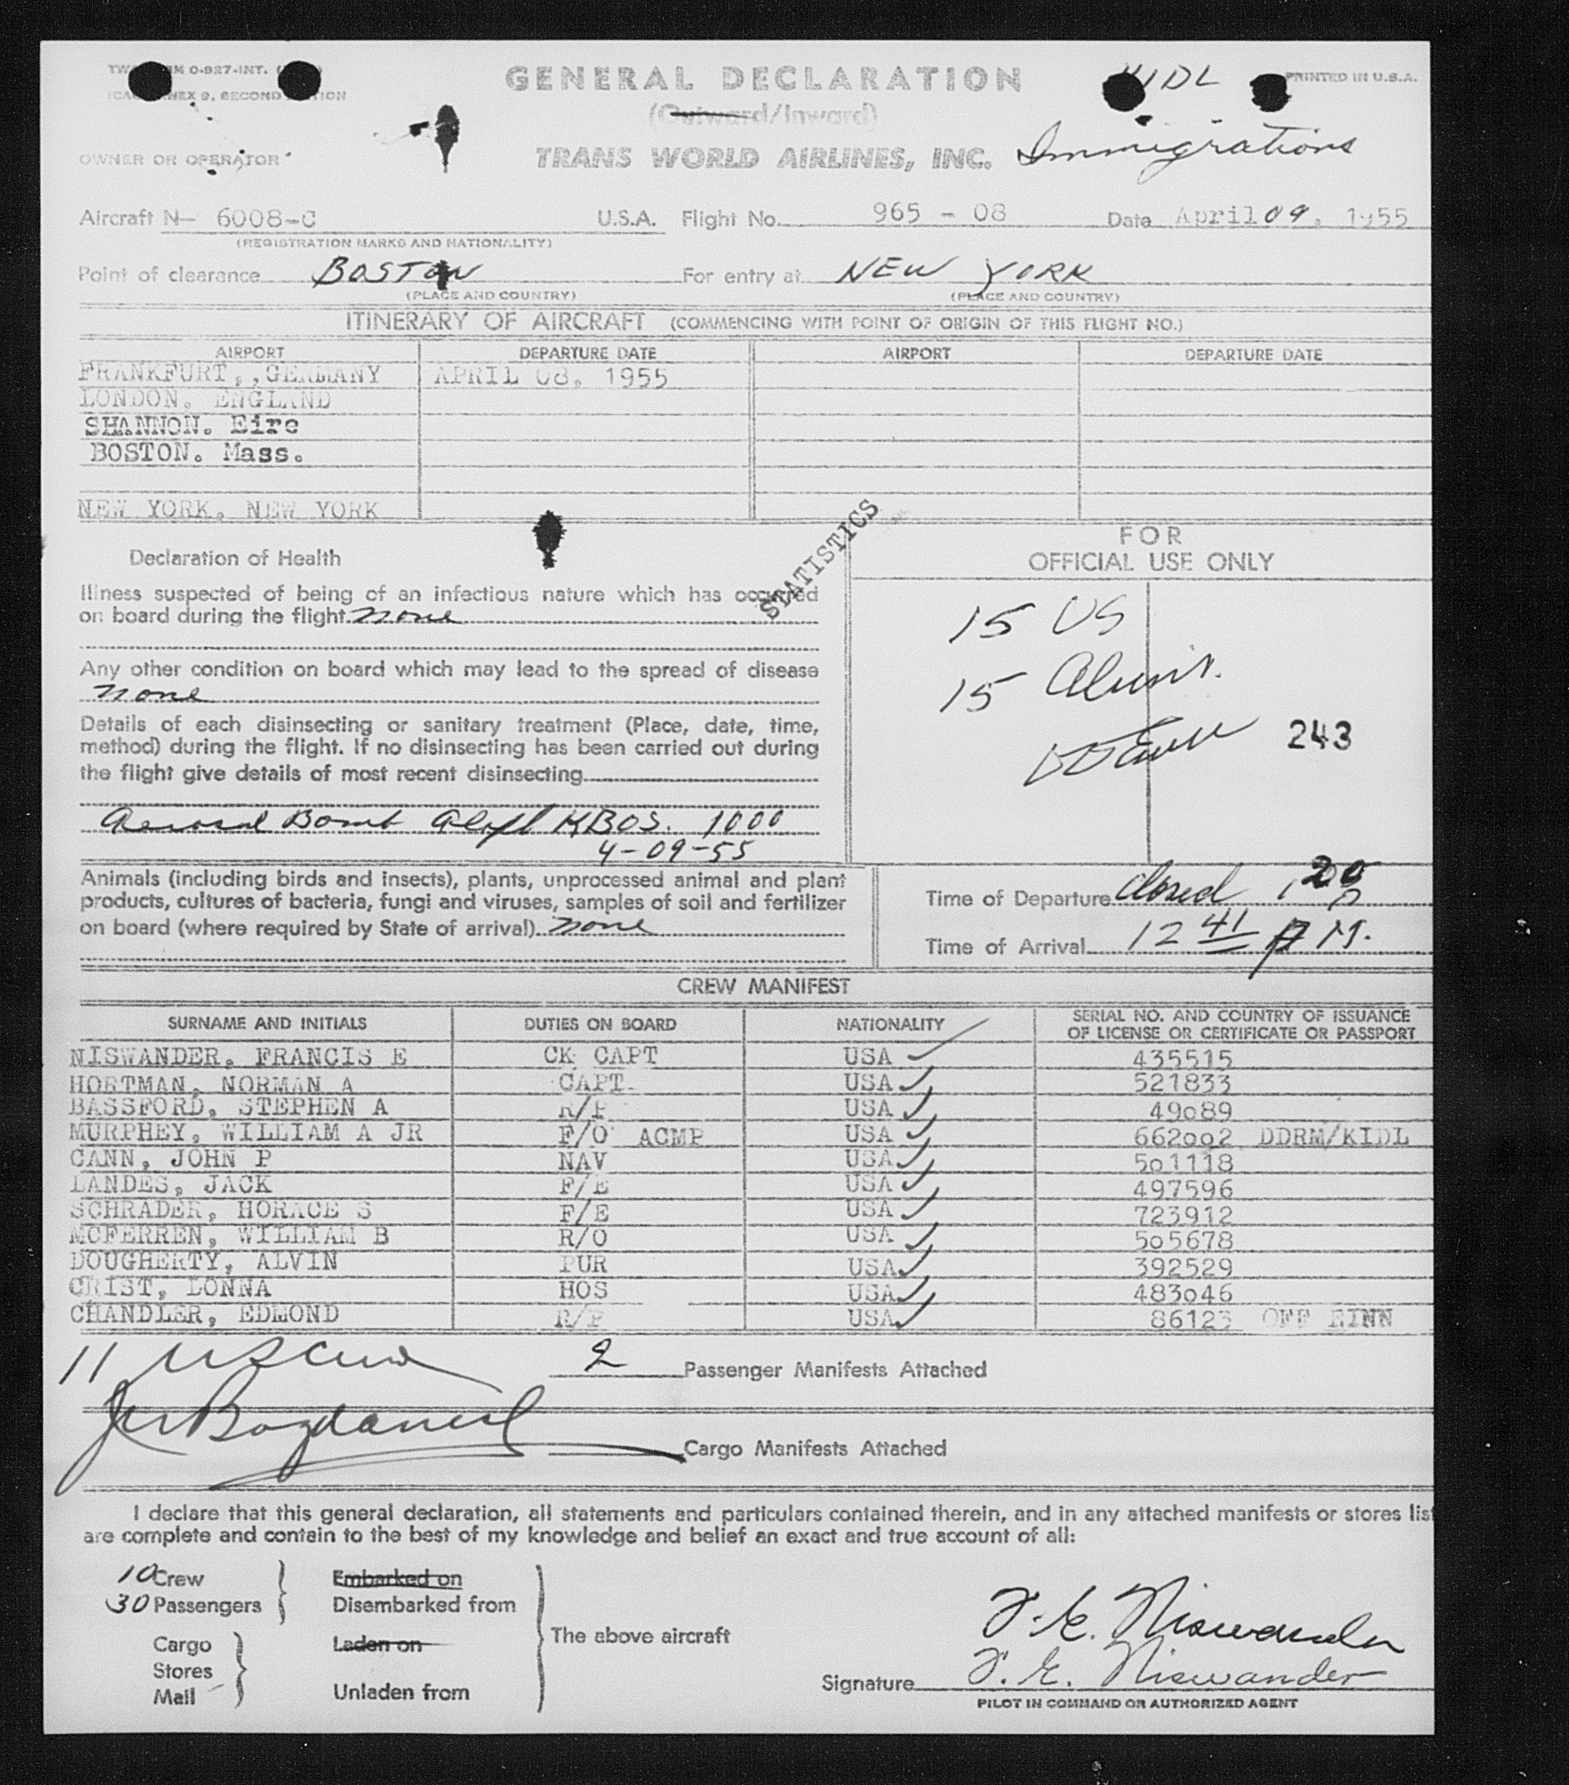 GENERAL DECLARATION
KIDL
PRINTED IN U.S.A.
(Outward/Inward)
OWNER OR OPERATOR
TRANS WORLD AIRLINES, INC.
Immigrations
Aircraft N- 6008-C U.S.A. Flight No. 965 - 08 Date April 09, 1955
(REGISTRATION MARKS AND NATIONALITY)
Point of clearance BOSTON For entry at NEW YORK
(PLACE AND COUNTRY) (PLACE AND COUNTRY)
ITINERARY OF AIRCRAFT (COMMENCING WITH POINT OF ORIGIN OF THIS FLIGHT NO.)
AIRPORT DEPARTURE DATE AIRPORT DEPARTURE DATE
FRANKFURT,,GERMANY APRIL 08, 1955
LONDON. ENGLAND
SHANNON. Eire
BOSTON. Mass.
NEW YORK. NEW YORK
STATISTICS
Declaration of Health
Illness suspected of being of an infectious nature which has occurred
on board during the flight none
Any other condition on board which may lead to the spread of disease
none
Details of each disinsecting or sanitary treatment (Place, date, time,
method) during the flight. If no disinsecting has been carried out during
the flight give details of most recent disinsecting
Aerosol Bomb KBOS. 1000
4-09-55
FOR
OFFICIAL USE ONLY
15 US
15
243
Animals (including birds and insects), plants, unprocessed animal and plant
products, cultures of bacteria, fungi and viruses, samples of soil and fertilizer
on board (where required by State of arrival) none
Time of Departure Closed 1 20 P
Time of Arrival 12 41 P M.
CREW MANIFEST
SURNAME AND INITIALS DUTIES ON BOARD NATIONALITY SERIAL NO. AND COUNTRY OF ISSUANCE
OF LICENSE OR CERTIFICATE OR PASSPORT
NISWANDER, FRANCIS E CK CAPT USA 435515
HORTMAN, NORMAN A CAPT USA 521833
BASSFORD, STEPHEN A R/P USA 49089
MURPHEY, WILLIAM A JR F/O ACMP USA 662002 DDRM/KIDL
CANN, JOHN P NAV USA 501118
LANDES, JACK F/E USA 497596
SCHRADER, HORACE S F/E USA 723912
MCFERREN, WILLIAM B R/O USA 505678
DOUGHERTY, ALVIN PUR USA 392529
CRIST, DONNA HOS USA 483046
CHANDLER, EDMOND R/P USA 86123 OFF EINN
11 US Crew
2 Passenger Manifests Attached
Cargo Manifests Attached
I declare that this general declaration, all statements and particulars contained therein, and in any attached manifests or stores list
are complete and contain to the best of my knowledge and belief an exact and true account of all:
10 Crew Embarked on
30 Passengers Disembarked from
The above aircraft
Cargo Laden on
Stores
Mail Unladen from
F. E. Niswander
Signature F. E. Niswander
PILOT IN COMMAND OR AUTHORIZED AGENT